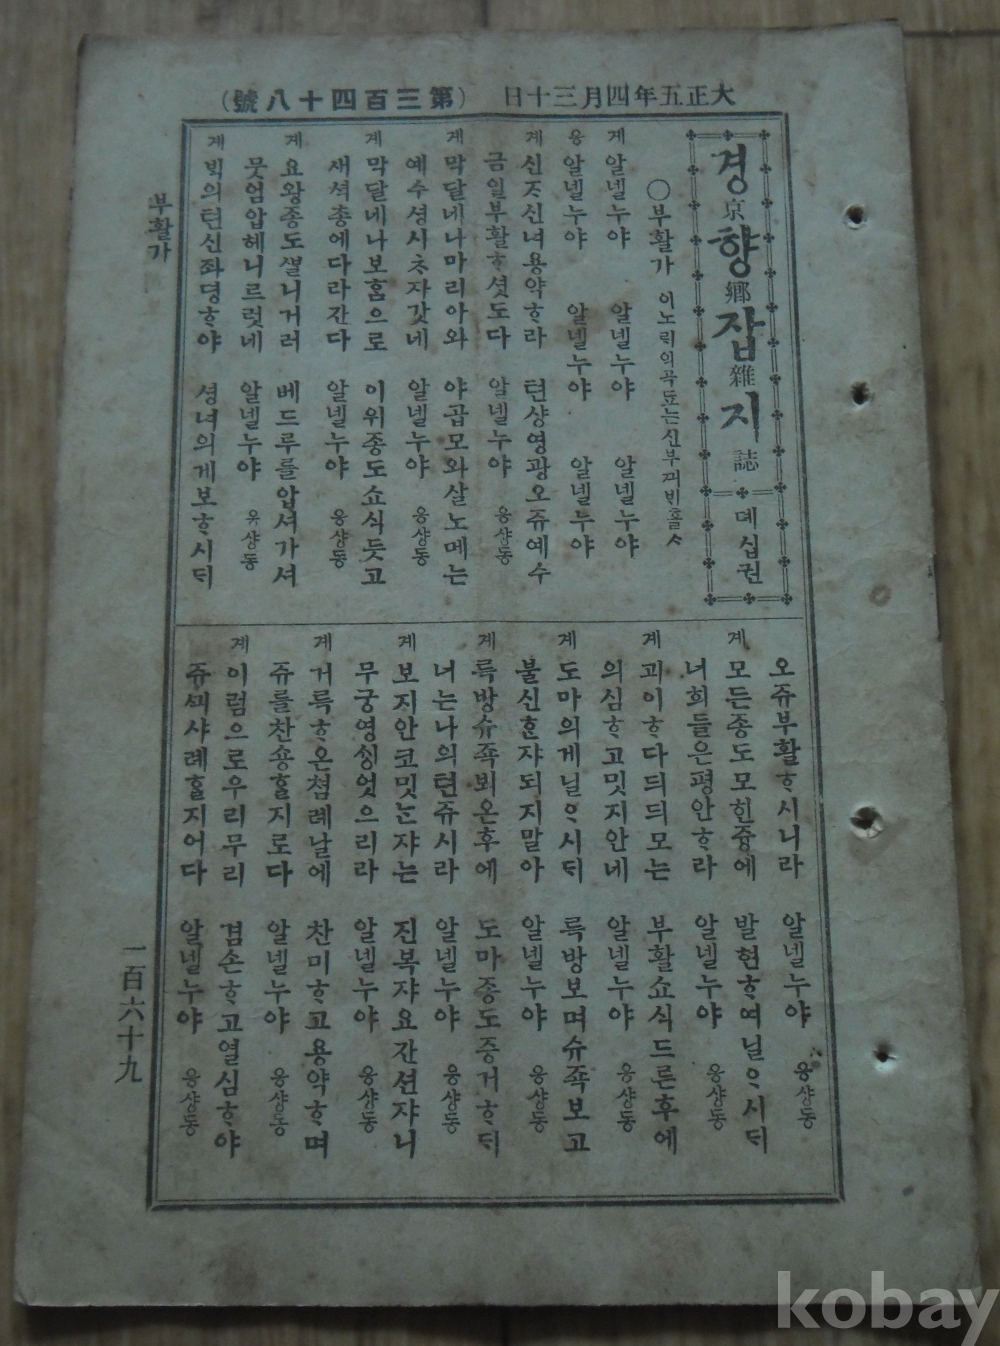 大正五年四月三十日 (第三百四十八號)
경京향鄕잡雜지誌 뎨십권
○부활가 이노래의곡됴는신부끠비홀ᄉ
계 알넬누야 알넬누야 알넬누야
응 알넬누야 알넬누야 알넬누야
계 신ᄌ신녀용약ᄒ라 텬샹영광오쥬예수
금일부활ᄒ셧도다 알넬누야 응샹동
계 막달네나마리아와 야곱모와살노메는
예수셩시ᄎ자갓네 알넬누야 응샹동
계 막달네나보홈으로 이위종도쇼식듯고
새셕총에다라간다 알넬누야 응샹동
계 요왕종도ᄲᆞᆯ니거러 베드루를압셔가셔
뭇엄압헤니르럿네 알넬누야 응샹동
계 ᄇᆡᆨ의텬신좌뎡ᄒ야 셩녀의게보ᄒ시ᄃᆡ
오쥬부활ᄒ시니라 알넬누야 응샹동
계 모든종도모힌즁에 발현ᄒ여닐ᄋ시ᄃᆡ
너희들은평안ᄒ라 알넬누야 응샹동
계 괴이ᄒ다듸듸모는 부활쇼식드른후에
의심ᄒ고밋지안네 알넬누야 응샹동
계 도마의게닐ᄋ시ᄃᆡ 륵방보며슈족보고
불신ᄒᆞᆫ쟈되지말아 알넬누야 응샹동
계 륵방슈족뵈온후에 도마종도증거ᄒᄃᆡ
너는나의텬쥬시라 알넬누야 응샹동
계 보지안코밋ᄂᆞᆫ쟈는 진복쟈요간션쟈니
무궁영ᄉᆡᆼ엇으리라 알넬누야 응샹동
계 거륵ᄒ온쳠례날에 찬미ᄒ고용약ᄒ며
쥬를찬숑ᄒᆞᆯ지로다 알넬누야 응샹동
계 이럼으로우리무리 겸손ᄒ고열심ᄒ야
쥬ᄭᅴ샤례ᄒᆞᆯ지어다 알넬누야 응샹동
부활가
一百六十九
kobay